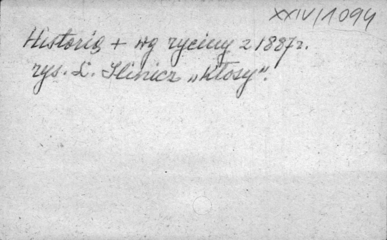 XXIV/1094
Historia + wg ryciny z 1887 r.
rys. L. Ilinicz „Kłosy".